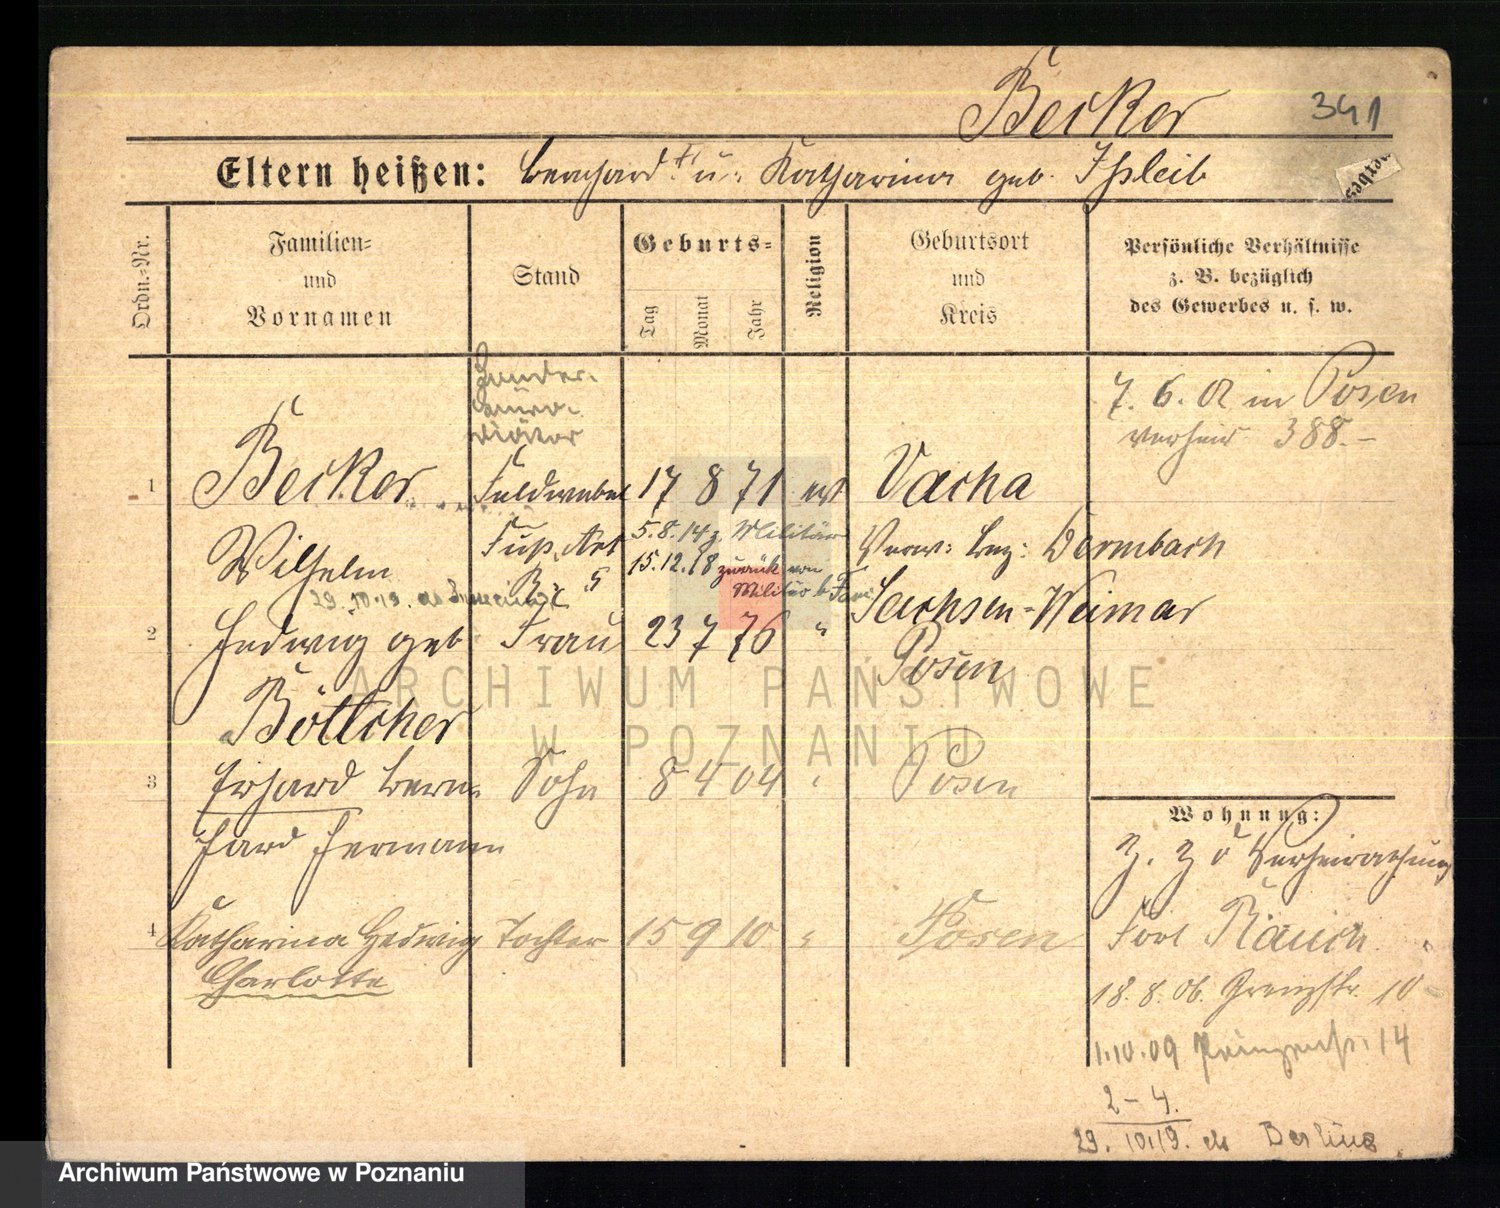 Becker
341
Eltern heißen: Bernhard † u. Katharina geb. Ißleib
Ordn.-Nr.
Familien-
und
Vornamen
Stand
Geburts-
Tag
Monat
Jahr
Religion
Geburtsort
und
Kreis
Persönliche Verhältnisse
z. B. bezüglich
des Gewerbes u. s. w.
7. 6. 02 in Posen
verheir. 388.-
1 Becker Feldwebel 17 8 71 ev Vacha
Wilhelm Fuß Art 5.8.14 z. Militär Verw: bez: Dermbach
R. 5 15.12.18 zurück vom
Militär
29.10.19. Sachsen-Weimar
2 Hedwig geb Frau 23 7 76 " Posen
Böttcher
3 Erhard Bern- Sohn 8 4 04 " Posen
hard Hermann
4 Katharina Hedwig Tochter 15 9 10 " Posen
Charlotte
Wohnung:
z. Z d Verheirathung
Fort Rauch
18. 8. 06. Grenzstr. 10
1.10.09 Prinzenstr. 14
2-4.
29. 10.19. Berlin
ARCHIWUM PAŃSTWOWE
W POZNANIU
Archiwum Państwowe w Poznaniu